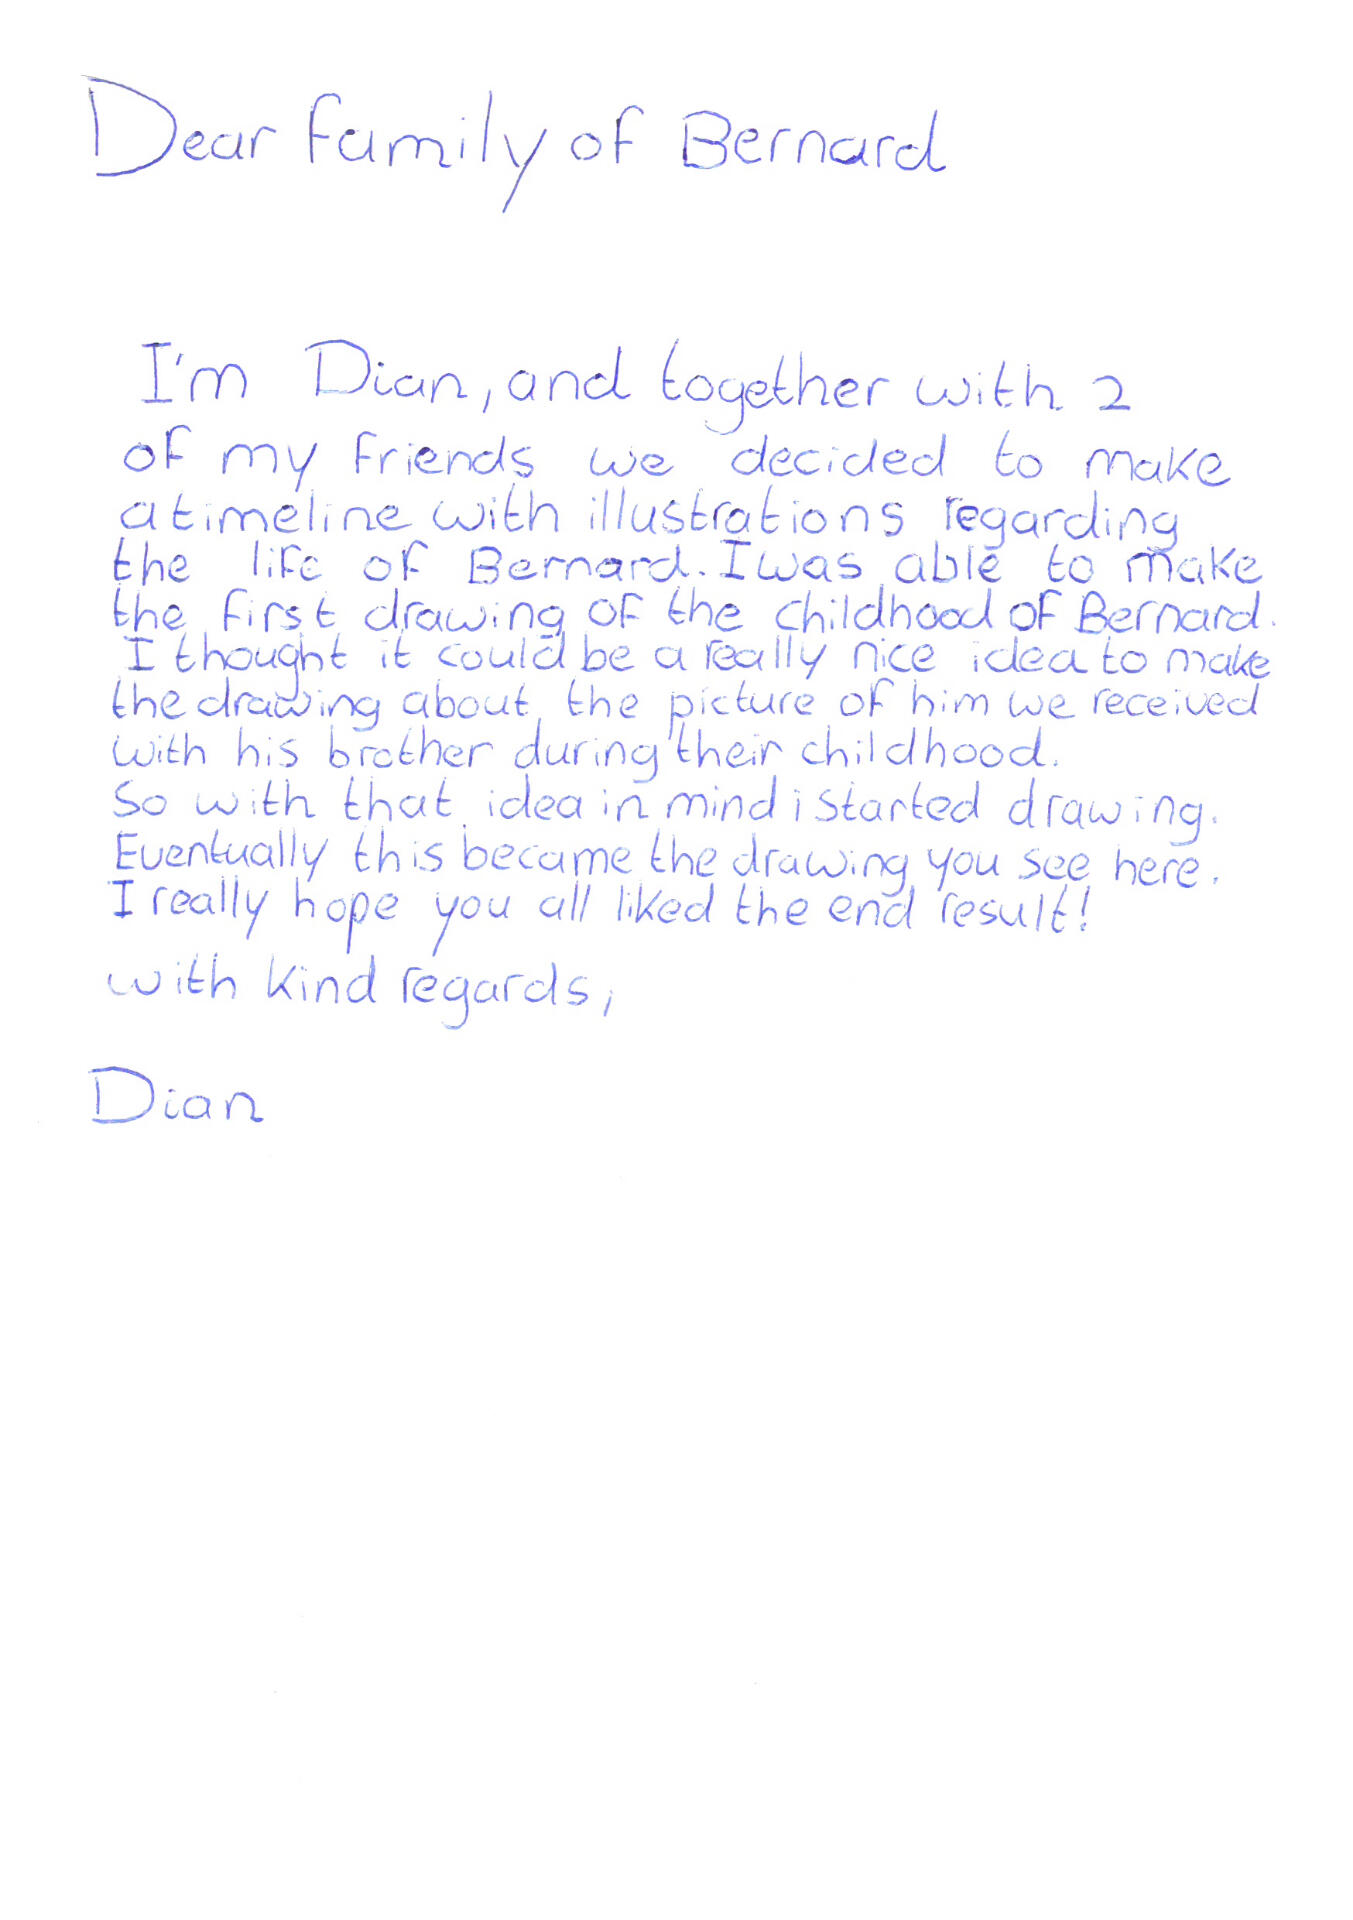 Dear family of Bernard
I'm Dian, and together with 2
of my friends we decided to make
a timeline with illustrations regarding
the life of Bernard. I was able to make
the first drawing of the childhood of Bernard.
I thought it could be a really nice idea to make
the drawing about the picture of him we received
with his brother during their childhood.
So with that idea in mind i started drawing.
Eventually this became the drawing you see here.
I really hope you all liked the end result!
with kind regards,
Dian